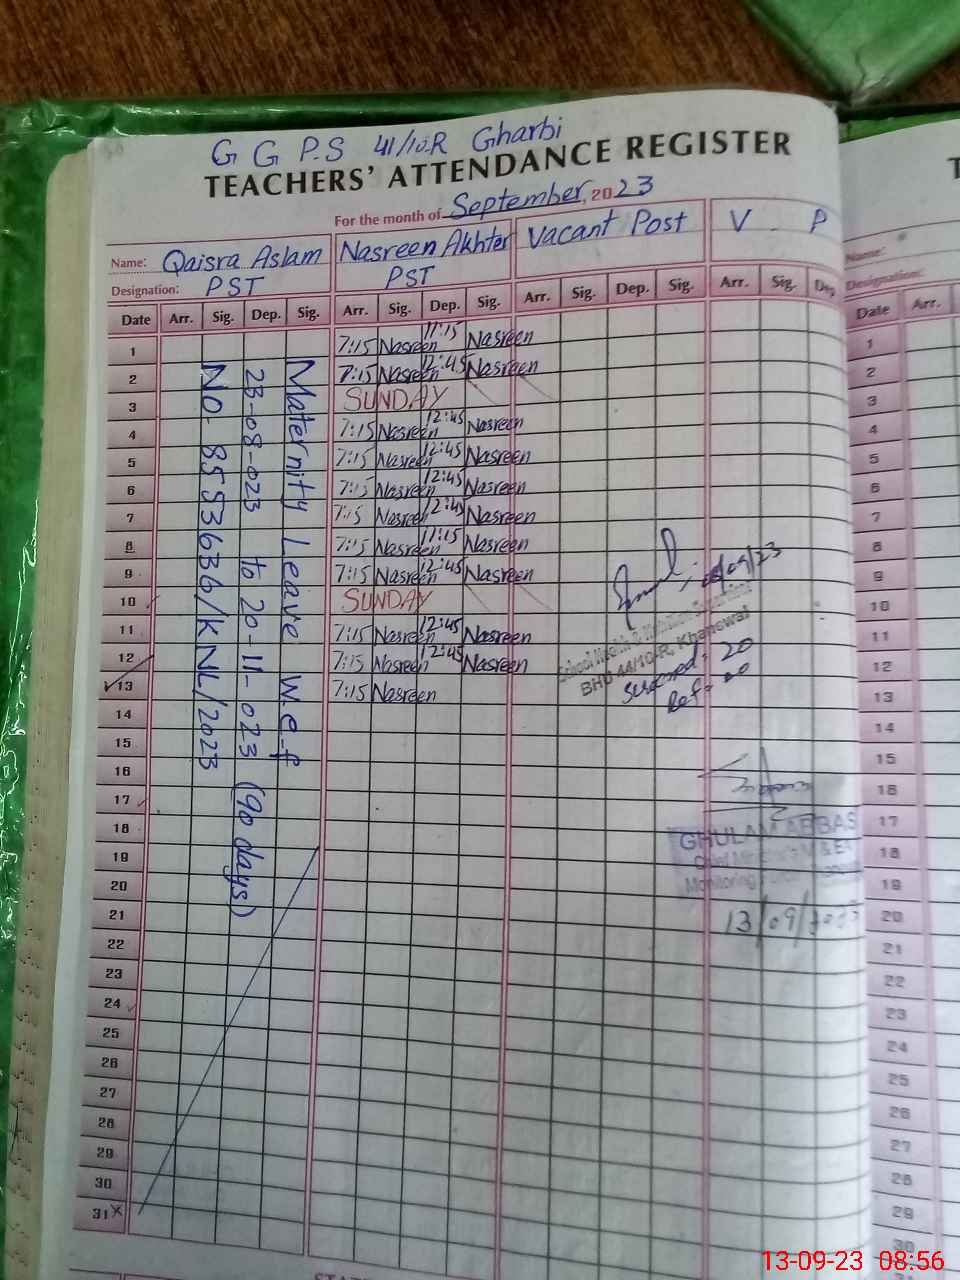 G G P.S 41/10.R Gharbi
TEACHERS' ATTENDANCE REGISTER
For the month of September, 2023
Name: Qaisra Aslam Nasreen Akhter Vacant Post V P
Designation: PST PST
Date Arr. Sig. Dep. Sig. Arr. Sig. Dep. Sig. Arr. Sig. Dep. Sig. Arr. Sig. Dep
1 7:15 Nasreen 11:15 Nasreen
2 7:15 Nasreen 12:45 Nasreen
3 SUNDAY
4 7:15 Nasreen 12:45 Nasreen
5 7:15 Nasreen 12:45 Nasreen
6 7:15 Nasreen 12:45 Nasreen
7 7:15 Nasreen 12:45 Nasreen
8 7:15 Nasreen 11:15 Nasreen
9 7:15 Nasreen 12:45 Nasreen
10 SUNDAY
11 7:15 Nasreen 12:45 Nasreen
12 7:15 Nasreen 12:45 Nasreen
13 7:15 Nasreen
14
15
16
17
18
19
20
21
22
23
24
25
26
27
28
29
30
31
Maternity Leave w.e.f
23-08-023 to 20-11-023 (90 days)
NO- 8553636/KNL/2023
School Health & Nutrition
BHU 44/10-R, Khanewal
Screened = 20
Ref =
GHULAM ABBAS
Chief Minister's M & E
Monitoring
13/09/2023
Name:
Designation:
Date Arr.
1
2
3
4
5
6
7
8
9
10
11
12
13
14
15
16
17
18
19
20
21
22
23
24
25
26
27
28
29
30
13-09-23 08:56